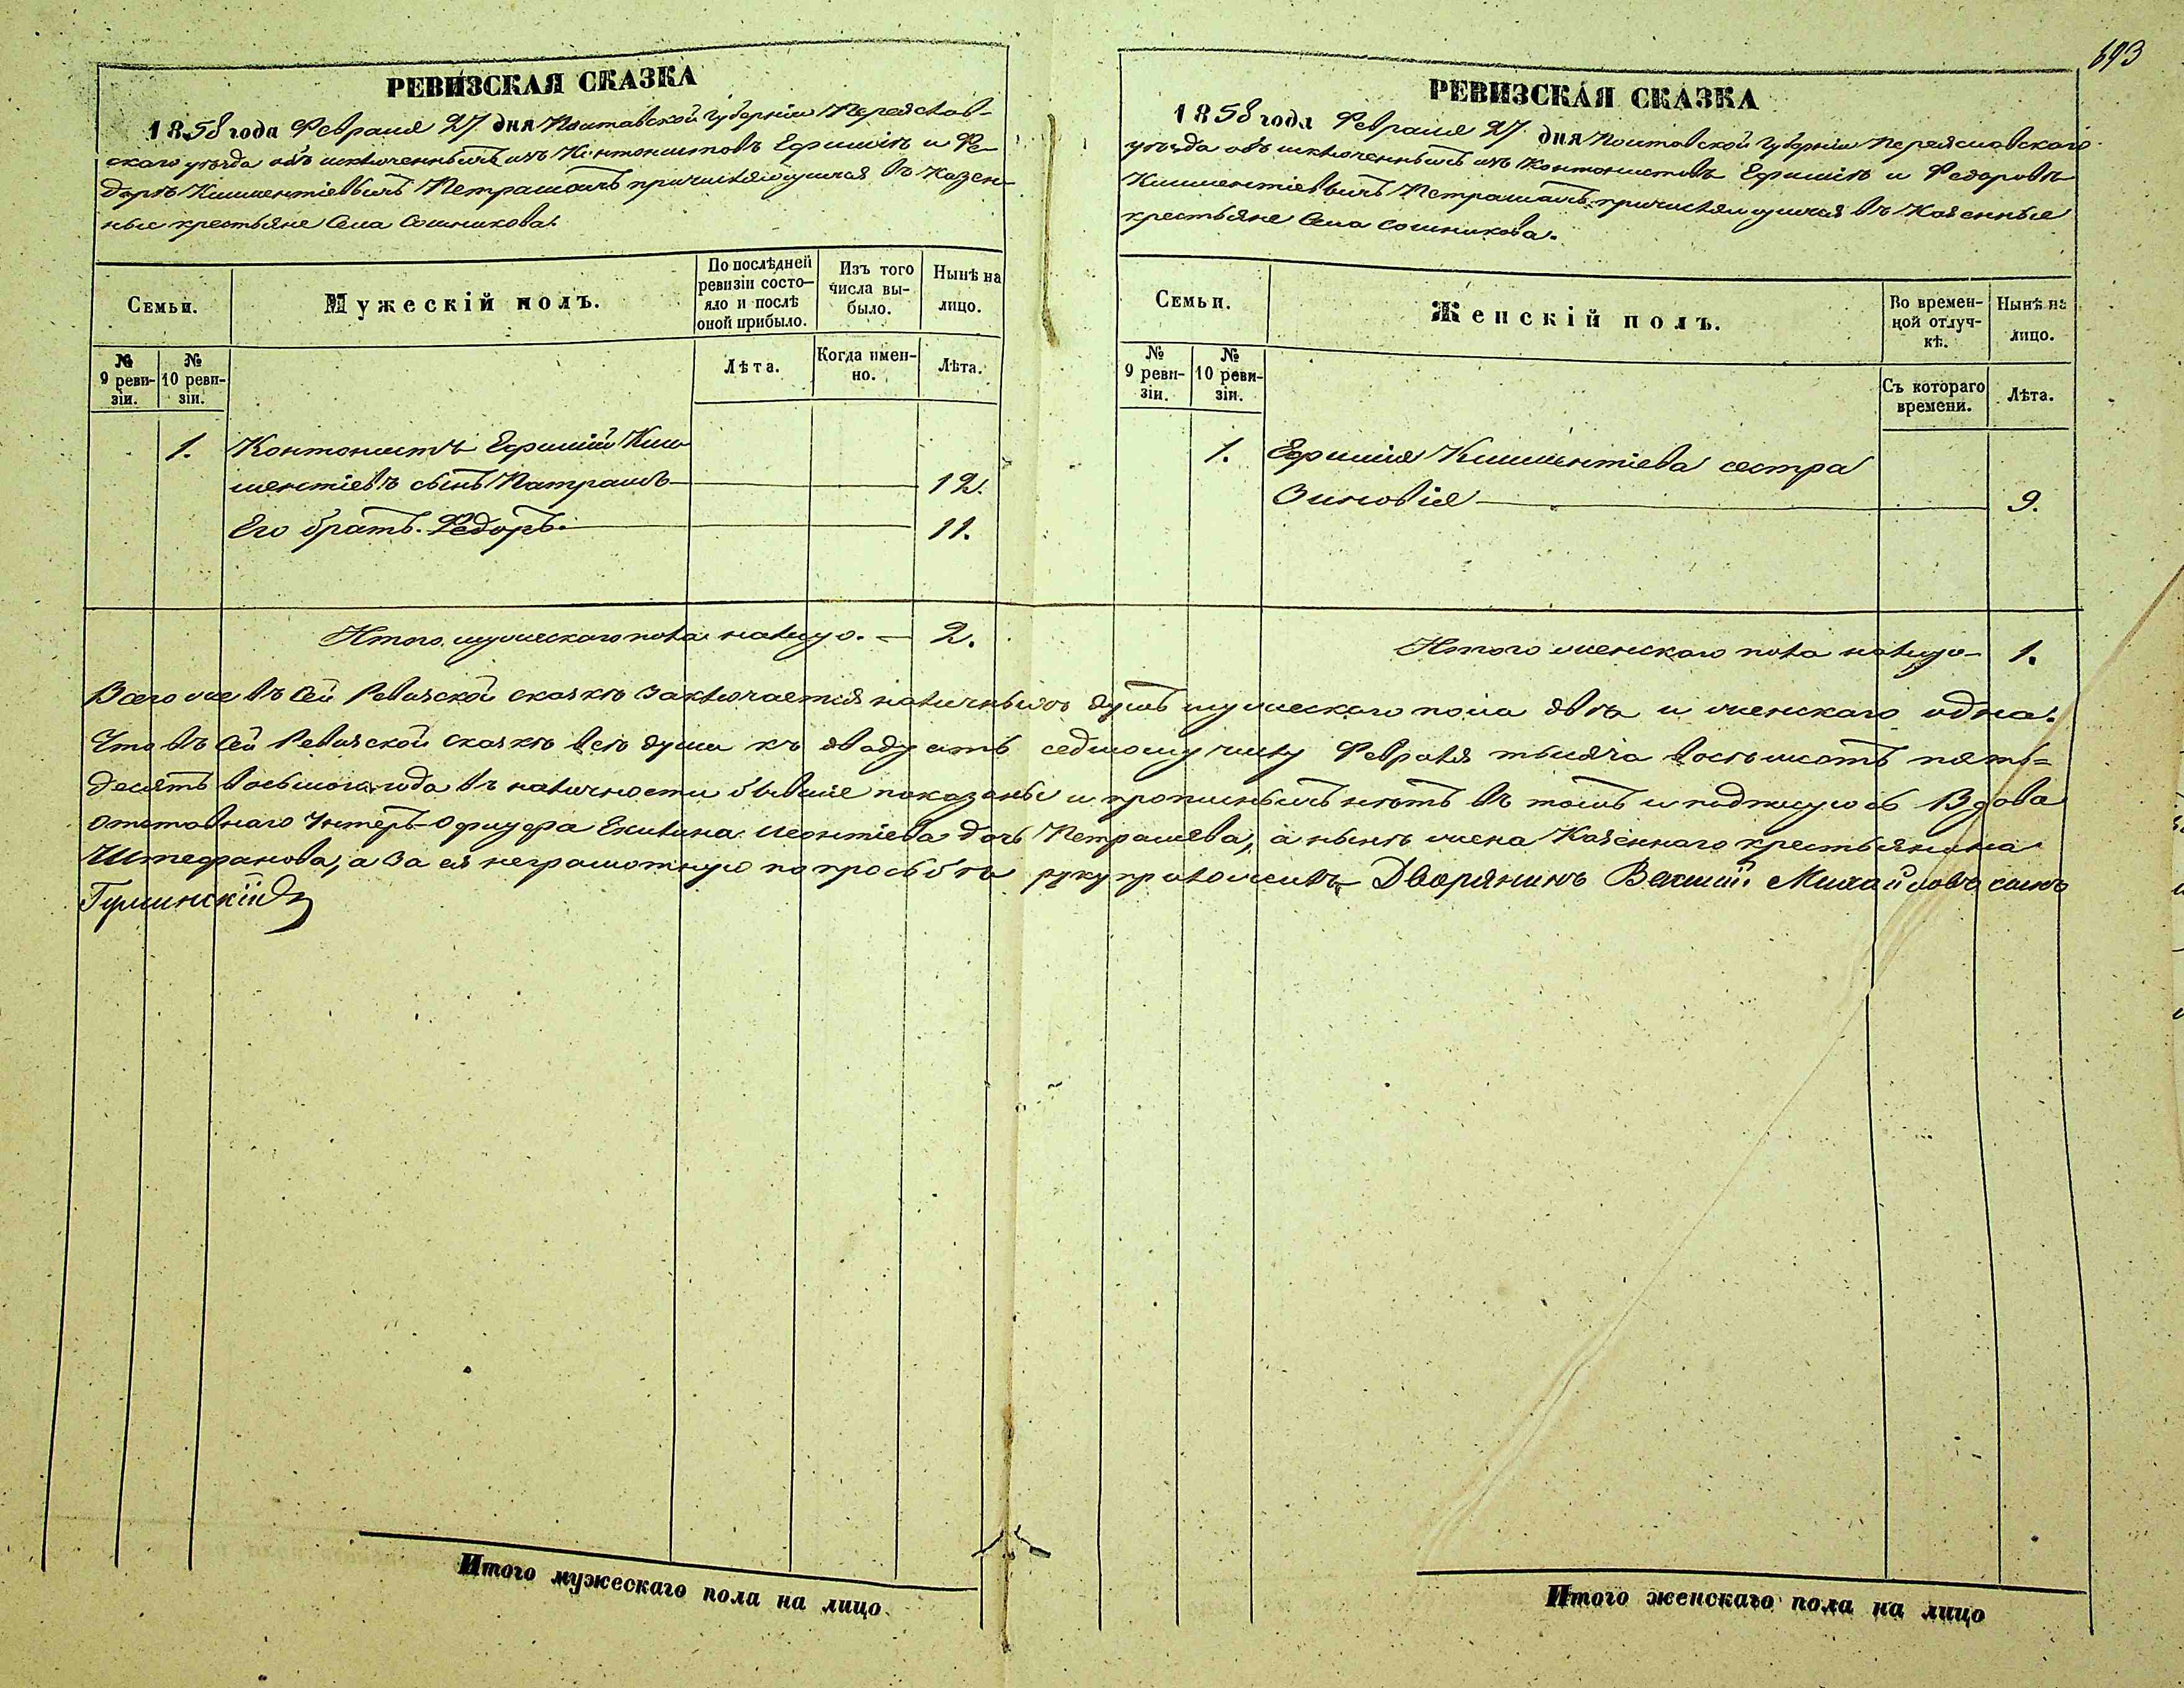 693
РЕВИЗСКАЯ СКАЗКА
1858 года Февраля 27 дня Полтавской Губерніи Переяслав-
скаго уѣзда объ исключенныхъ изъ Кантонистовъ Ефимѣ и Фе-
дорѣ Климентіевыхъ Петрашахъ причисляющихся въ Казен-
ные крестьяне Села Сошникова.
Семьи.
Мужескій полъ.
По послѣдней ревизіи состо-
яло и послѣ
оной прибыло.
Изъ того
числа вы-
было.
Нынѣ на
лицо.
№
9 реви-
зіи.
№
10 реви-
зіи.
Лѣта.
Когда имен-
но.
Лѣта.
1. Контонистъ Ефимій Кли
ментіевъ сынъ Петрашъ 12.
Его братъ Федоръ. 11.
Итого мужескаго пола налицо. — 2.
РЕВИЗСКАЯ СКАЗКА
1858 года Февраля 27 дня Полтавской Губерніи Переяславскаго
уѣзда объ исключенныхъ изъ Контонистовъ Ефимѣ и Федоровѣ
Климентіевыхъ Петрашахъ причисляющихся въ Казенные
крестьяне Села Сошникова.
Семьи.
Женскій полъ.
Во времен-
ной отлуч-
кѣ.
Нынѣ на
лицо.
№
9 реви-
зіи.
№
10 реви-
зіи.
Съ котораго
времени.
Лѣта.
1. Ефимія Климентіева сестра
Зиновія 9.
Итого женскаго пола налицо 1.
Всего же въ сей Ревизской сказкѣ заключается наличныхъ душъ мужескаго пола двѣ и женскаго одна.
Что въ сей Ревизской сказкѣ всѣ души къ двадцать седмому числу Февраля тысяча восемьсотъ пять=
десятъ восьмого года въ наличности бывшіе показаны и прописныхъ нѣтъ въ томъ и подписуюсь Вдова
отставнаго Унтеръ-офицера Леонтіева дочь Петрашева, а нынѣ жена Казеннаго крестьянина
Штефанова, а за ея неграмотную по просьбѣ руку приложилъ Дворянинъ Михайловъ сынъ
Гуминскій
Итого мужескаго пола на лицо
Итого женскаго пола на лицо